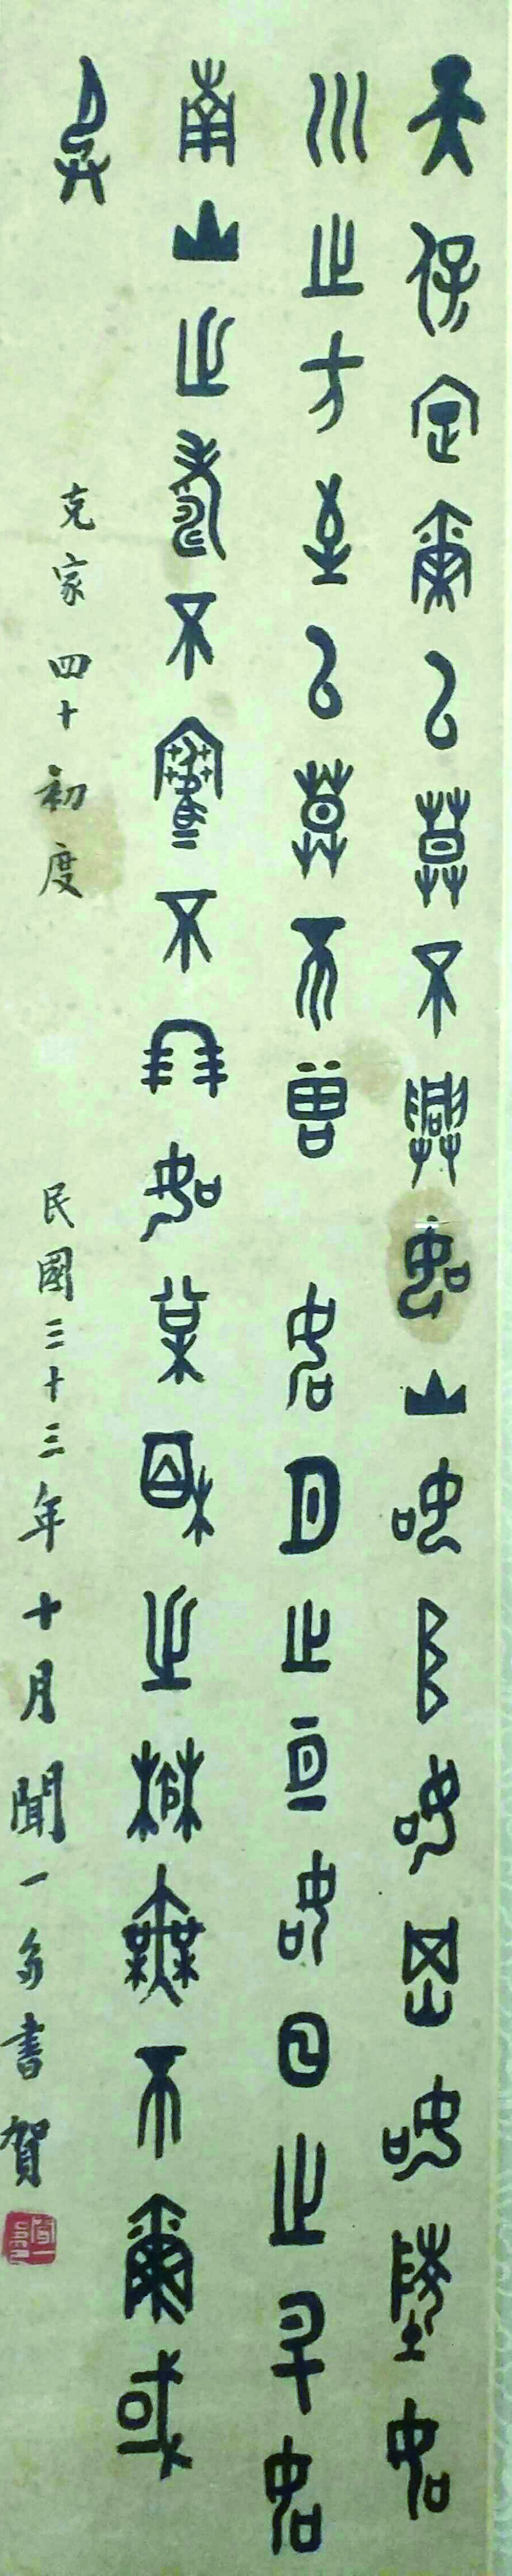 天保定爾以莫不興如山如阜如岡如陵如
川之方至以莫不曾如月之亙如日之升如
南山之壽不騫不崩如松柏之茂無不爾或
承
克家四十初度 民國三十三年十月聞一多書賀